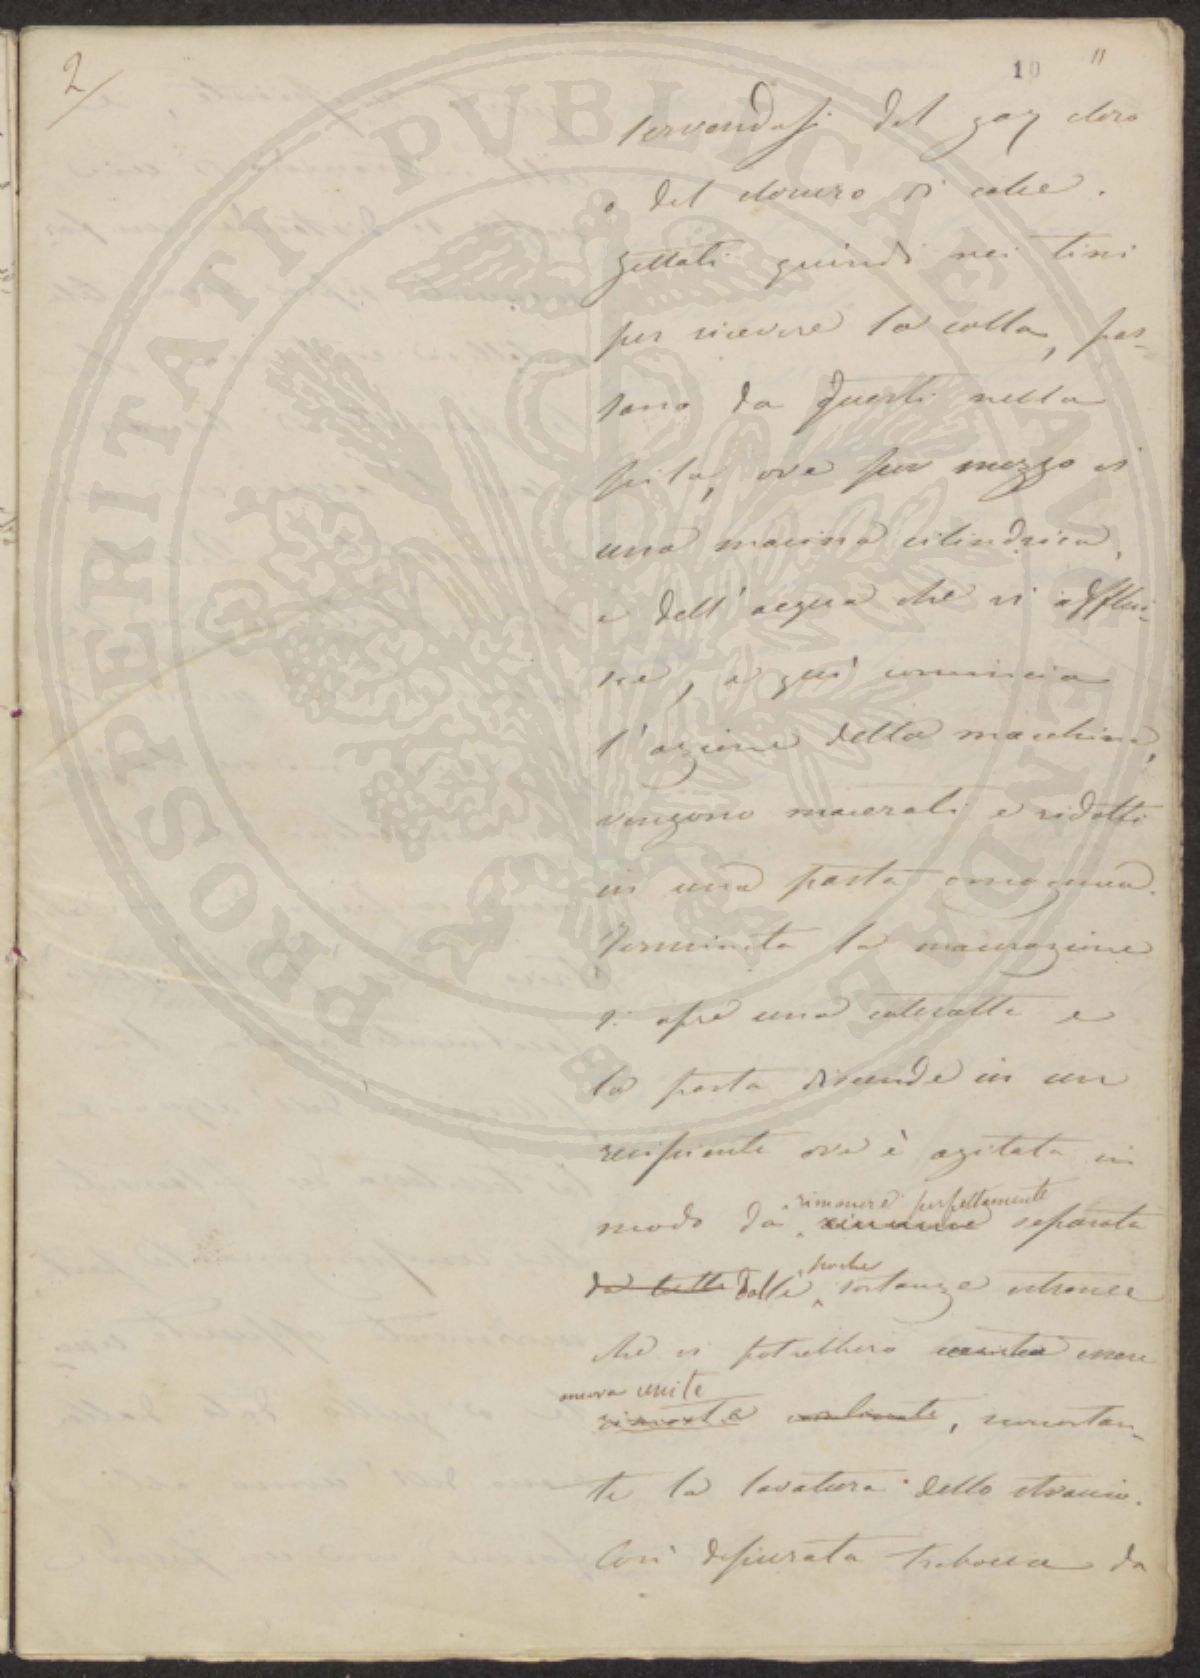 2
10 11
servendosi del gaz cloro
o del cloruro di calce.
gettati quindi nei tini
per ricevere la colla, pas-
sano da questi nella
pila, ove per mezzo di
una macina cilindrica,
e dell'acqua che vi afflui-
sce, e qui comincia
l'azione della macchina,
vengono macerati e ridotti
in una pasta omogenea.
Terminata la macerazione
si apre una cateratta e
la pasta discende in un
recipiente ove è agitata in
rimanere perfettamente
modo da separata
poche
da tutte dalle sostanze estranee
che vi potrebbero essere
ancora unite
rimaste, nonostan-
te la lavatura dello straccio.
Così depurata trabocca da
PROSPERITATI PVBLICAE AVGENDAE